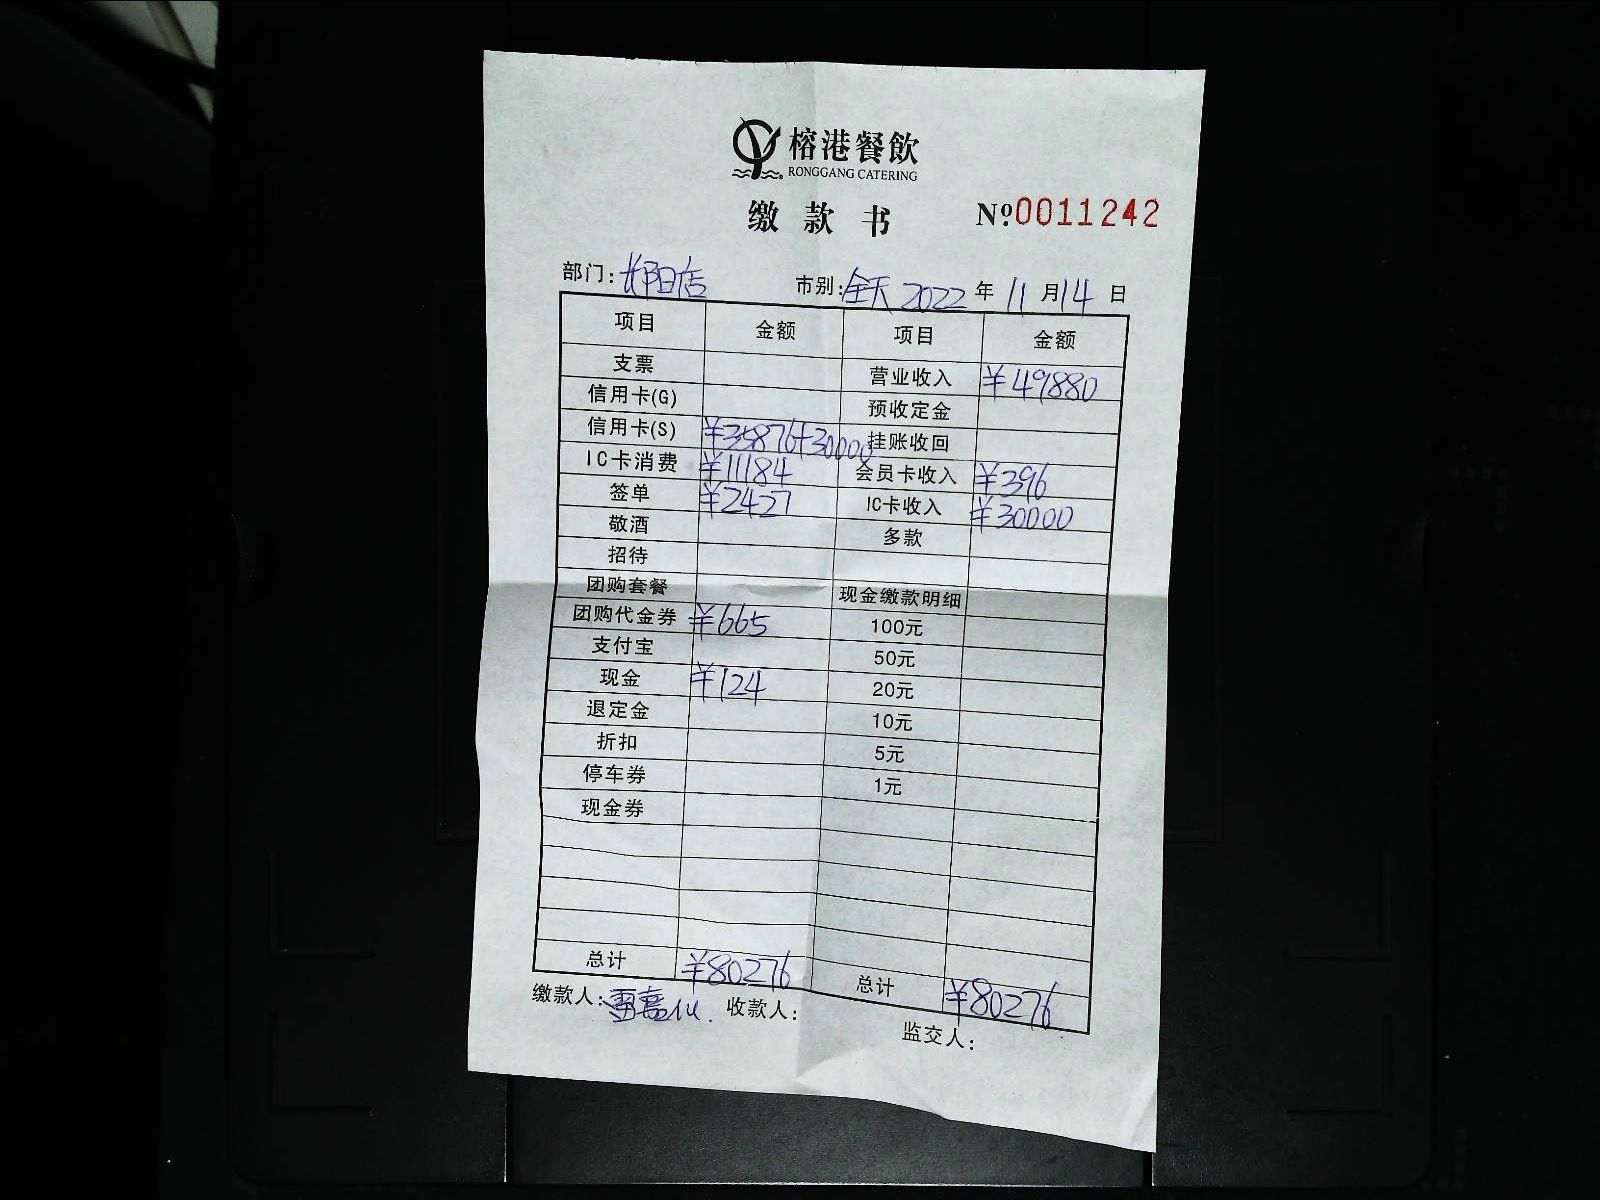 榕港餐飲
RONGGANG CATERING
缴款书 №0011242
部门: 市别:全天 2022年11月14日
项目 金额 项目 金额
支票 营业收入 ¥49880
信用卡(G) 预收定金
信用卡(S) ¥35876+30000 挂账收回
IC卡消费 ¥11184 会员卡收入 ¥396
签单 ¥2427 IC卡收入 ¥30000
敬酒 多款
招待
团购套餐 现金缴款明细
团购代金券 ¥665 100元
支付宝 50元
现金 ¥124 20元
退定金 10元
折扣 5元
停车券 1元
现金券
总计 ¥80276 总计 ¥80276
缴款人: 收款人: 监交人: